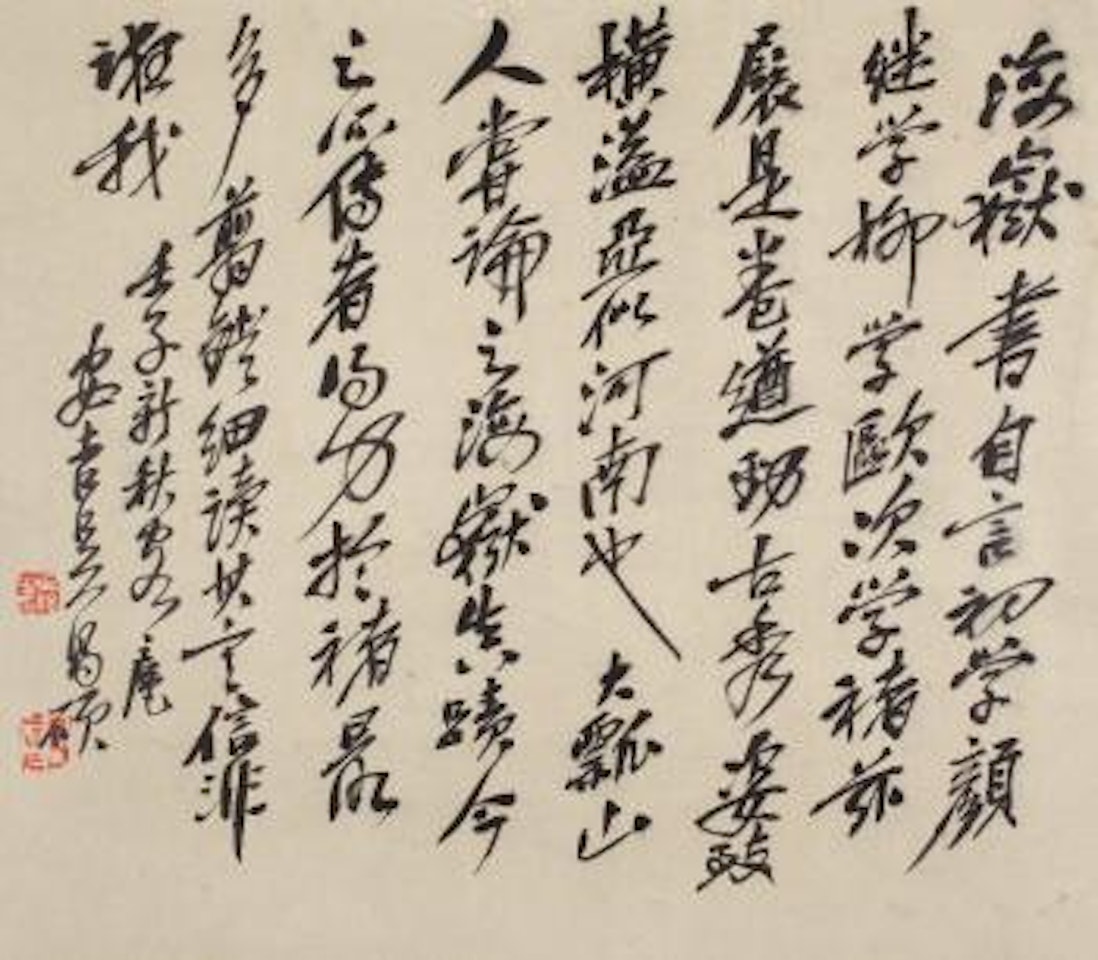 海嶽書自言初学顔
继学柳学歐次学褚兹
展是卷遒劲古秀姿致
橫溢亞似河南也大瓢山
人嘗論之海嶽生平蹟今
之所傳者得力於褚最
多翦鐙细读其言信非
誑我壬子新秋
安吉吳昌碩